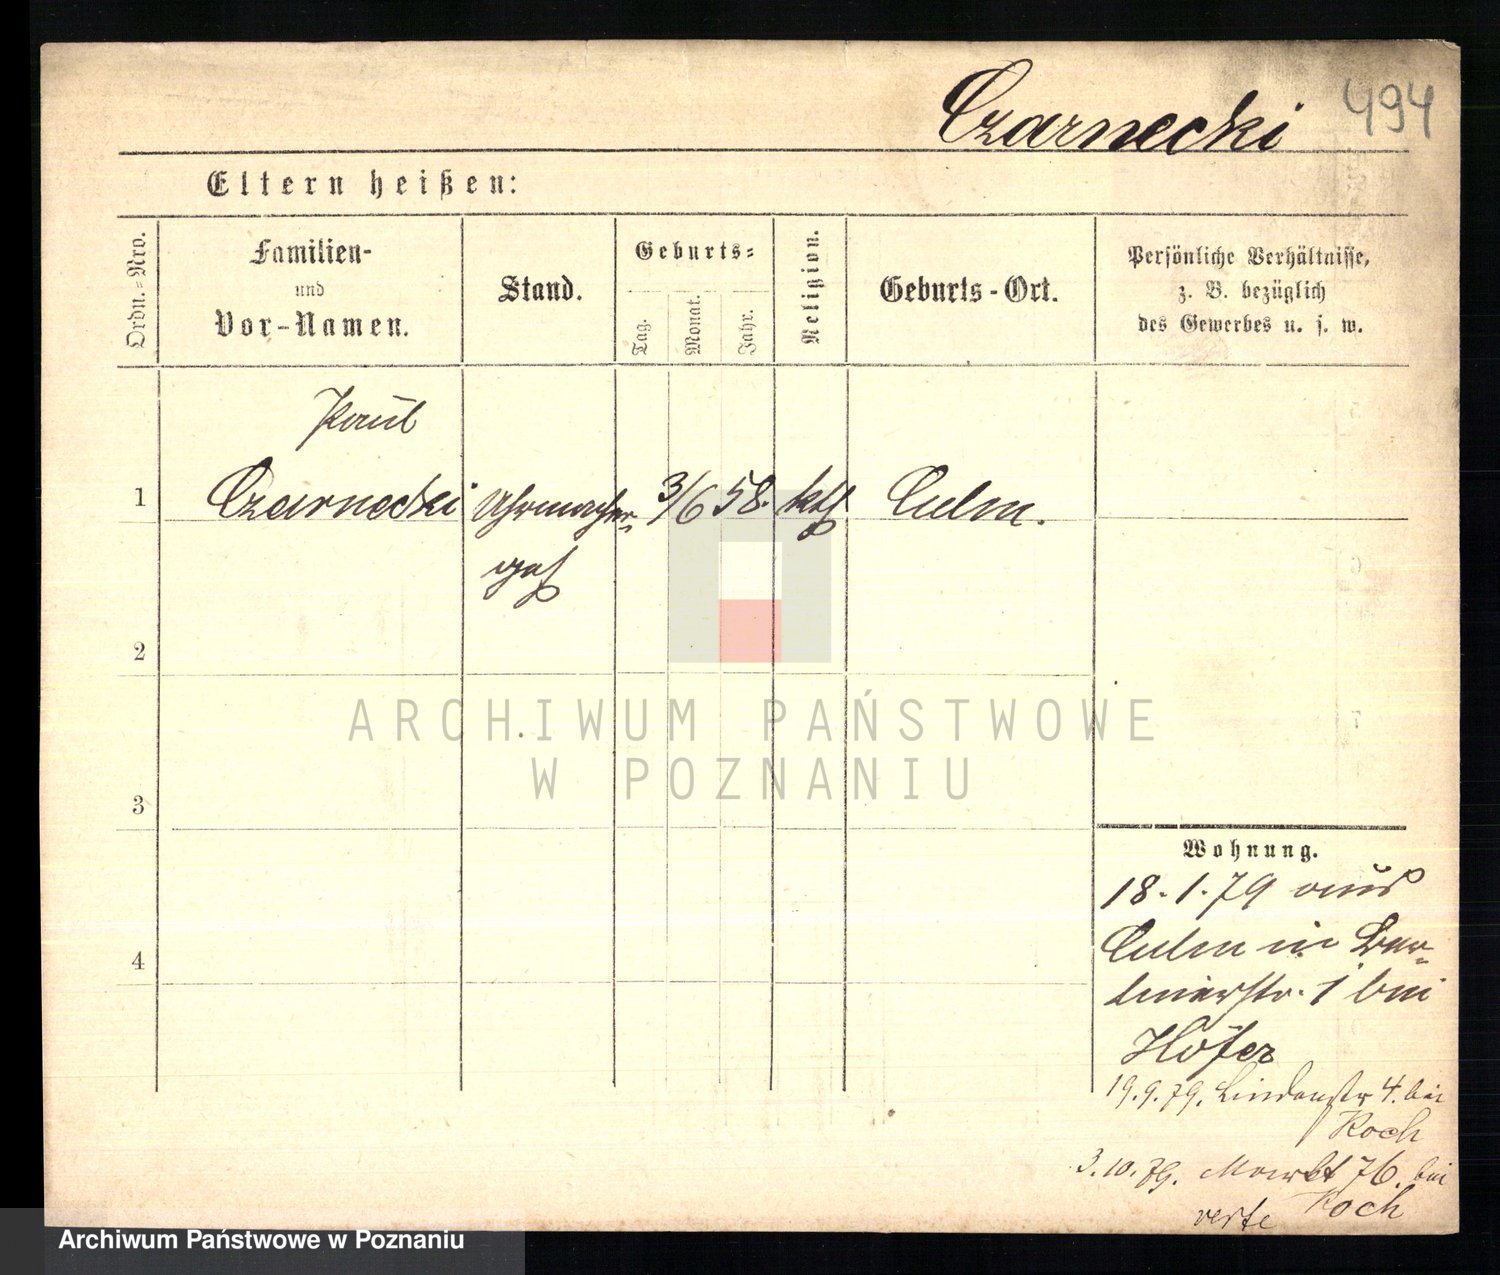 Czarnecki 494
Eltern heißen:
Ordn.-Nro.
Familien-
und
Vor-Namen.
Stand.
Geburts-
Tag.
Monat.
Jahr.
Religion.
Geburts-Ort.
Persönliche Verhältnisse,
z. B. bezüglich
des Gewerbes u. s. w.
Paul
1 Czarnecki Uhrmacher- 3/6 58. kth Culm.
geh
2
3
4
ARCHIWUM PAŃSTWOWE
W POZNANIU
Wohnung.
18.1.79 aus
Culm in Ber-
linerstr. 1 bei
Höfer
19.9.79. Lindenstr 4. bei
Koch
3.10.79. Markt 76. bei
Koch
verte
Archiwum Państwowe w Poznaniu